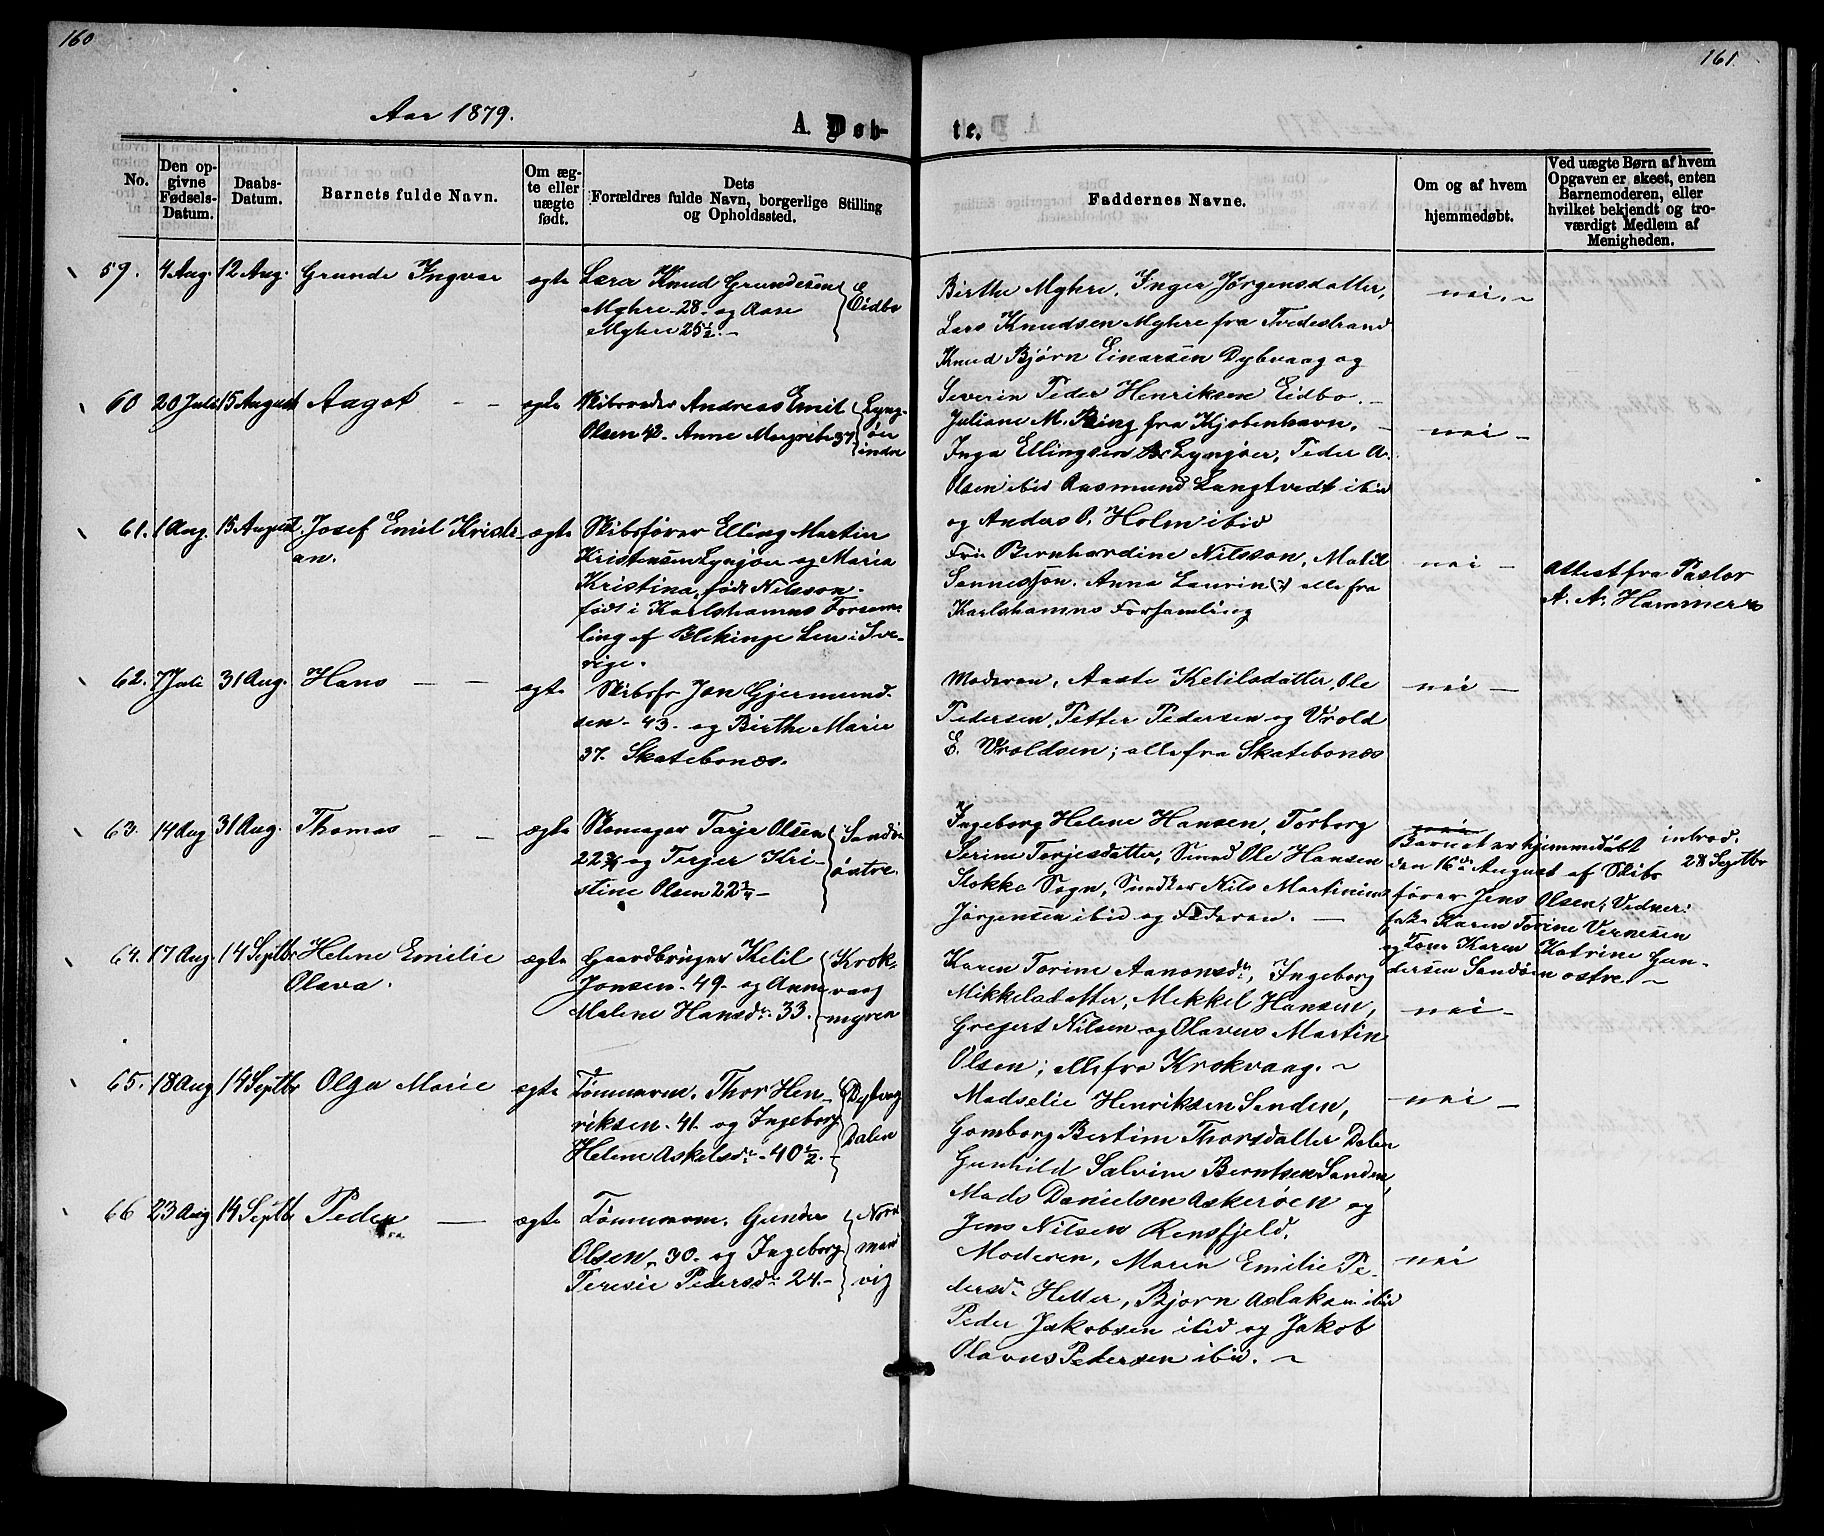 160
161.
Aar 1879.
A. Døb-
te.
No.
Den op-
givne
Fødsels-
Datum.
Daabs-
Datum.
Barnets fulde Navn.
Om æg-
te eller
uægte
født.
Dets
Forældres fulde Navn, borgerlige Stilling
og Opholdssted.
Faddernes Navne.
Om og af hvem
hjemmedøbt.
Ved uægte Børn af hvem
Opgaven er skeet, enten
Barnemoderen, eller
hvilket bekjendt og tro-
værdigt Medlem af
Menigheden.
59. 4 Aug. 12 Aug. Grunde Ingvar ægte
Lærer Knud Grundesen
Myhre 28. og Aase
Myhre 25½. -
Eidbo
Birthe Myhre. Inger Jørgensdatter,
Lars Knudsen Myhre fra Tvedestrand
Knud Bjørn Einarsen Dybvaag og
Severin Peder Henriksen Eidbo. -
nei. -
60 20 Juli 15 August Aagot - - ægte
Skibsreder Andreas Emil
Olsen 42. Anne Margrethe 37
Lyng-
øer
indre
Juliane M. Ring fra Kjøbenhavn. -
Inga Ellingsen Lyngøer, Peder A.
Olsen ibid Rasmund Langtvedt ibid
og Anders O. Holm ibid
nei -
61. 1 Aug. 15 August Josef Emil Kristi-
an. ægte
Skibsfører Elling Martin
Kristensen Lyngøer og Maria
Kristina, født Nilsson.
født i Karlshamns Forsam-
ling af Blekinge Len i Sve-
rige.
Frk Bernhardine Nilsson, Matil
Sannesson. Anna Laurin (?) alle fra
Karlshamns Forsamling
nei -
Attest fra Pastor
A. A. Hammer
62. 7 Juli 31 Aug. Hans - - ægte
Skibsfr Jon Gjermund-
sen - 43. og Birthe Marie
37. Skatebonæs.
Moderen, Aaste Ketilsdatter, Ole
Pedersen, Petter Pedersen og Vrold
E. Vroldsen; alle fra Skatebonæs
nei -
63. 14 Aug 31 Aug. Thomas - - ægte
Skomager Tarje Olsen
22 ¾ og Terjer Kri-
stine Olsen 22 ¼ -
Sandøen
østre.
Ingeborg Helene Hansen, Torborg
Serine Torjesdatter, Smed Ole Hansen
Stokke Sogn, Snedker Nils Martinius
Jørgensen ibid og Faderen. -
nei
Barnet er hjemmedøbt
den 16de August af Skibs-
fører Jens Olsen; Vedner:
Karen Torine Vernesen
og Karen Katrine Gun-
dersen Sandøen østre. -
introd.
28 Septbr
64. 17 Aug. 14 Septbr Helene Emilie
Olava. ægte
Gaardbruger Ketil
Jonsen - 49. og Anne
Malene Hansd. 33.
Krok-
vaag
myren
Karen Torine Aanonsdr, Ingeborg
Mikkelsdatter, Mekkel Hansen,
Gregert Nilsen og Olavus Martin
Olsen; alle fra Krokvaag. -
nei -
65. 18 Aug 14 Septbr Olga Marie ægte
Tømmerm. Thor Hen-
riksen - 41. og Ingeborg
Helene Askelsdr - 40½. -
Dybvag
Dalen
Madselie Henriksen Sanden,
Gomborg Bertine Thorsdatter Dalen
Gunhild Salvine Berntsen Sanden,
Mads Danielsen Askerøen og
Jens Nilsen Rensfjeld.
nei -
66 23 Aug 14 Septbr Peder - ægte
Tømmerm. Gunder
Olsen, 30. og Ingeborg
Teresie Pedersdr 24. -
Nord
mand
vig
Moderen, Maren Emilie Pe-
dersdr Hetter, Bjørn Aslaksen ibid
Peder Jakobsen ibid og Jakob
Olavus Pedersen ibid. -
nei